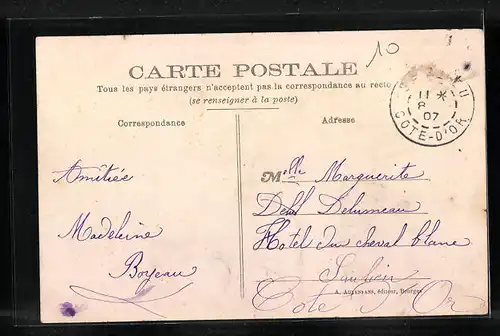 10
CARTE POSTALE
Tous les pays étrangers n'acceptent pas la correspondance au recto
(se renseigner à la poste)
11 *
8
07
COTE-D'OR
Correspondance
Adresse
Amitiés
Madeleine
Boyeau
Melle Marguerite
Delumeau
Hotel du cheval blanc
Saulieu
A. Auxenfans, éditeur, Bourges
Cote d'Or